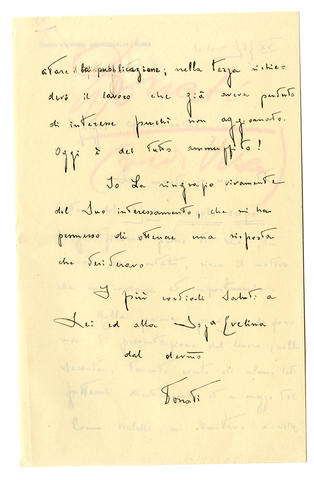 atare la pubblicazione; nella terza richie-
devo il lavoro che già aveva perduto
di interesse perché non aggiornato.
Oggi è del tutto ammuffito!
Io La ringrazio vivamente
del Suo interessamento, che mi ha
permesso di ottenere una risposta
che desideravo
I più cordiali saluti a
Lei ed alla Sig.a Evelina
dal devmo